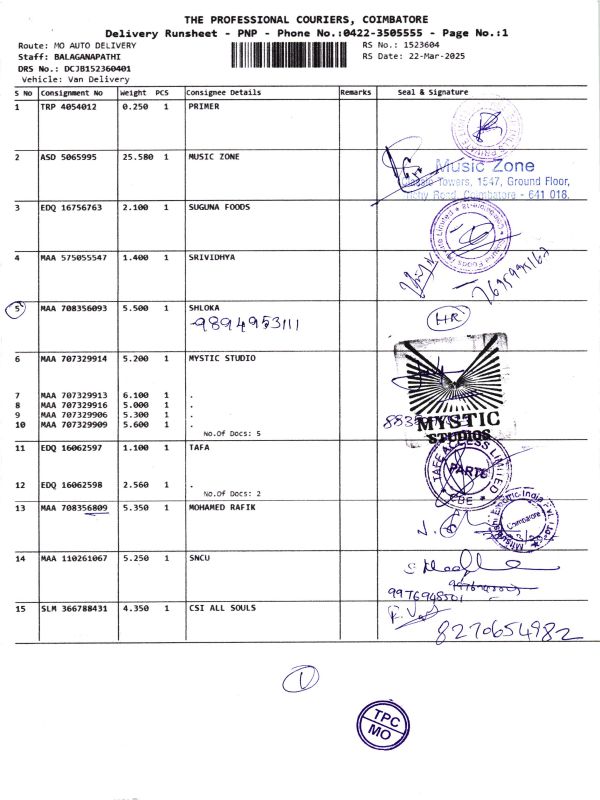 THE PROFESSIONAL COURIERS, COIMBATORE
Delivery Runsheet - PNP - Phone No.:0422-3505555 - Page No.:1
Route: MO AUTO DELIVERY RS No.: 1523604
Staff: BALAGANAPATHI RS Date: 22-Mar-2025
DRS No.: DCJB152360401
Vehicle: Van Delivery
S No Consignment No Weight PCS Consignee Details Remarks Seal & Signature
1 TRP 4054012 0.250 1 PRIMER
2 ASD 5065995 25.580 1 MUSIC ZONE
Music Zone
Towers, 1547, Ground Floor,
Road, Coimbatore - 641 018.
3 EDQ 16756763 2.100 1 SUGUNA FOODS
4 MAA 575055547 1.400 1 SRIVIDHYA
5 MAA 708356093 5.500 1 SHLOKA
9894953111 HR
6 MAA 707329914 5.200 1 MYSTIC STUDIO
7 MAA 707329913 6.100 1 .
8 MAA 707329916 5.000 1 .
9 MAA 707329906 5.300 1 .
10 MAA 707329909 5.600 1 .
No.Of Docs: 5
MYSTIC
STUDIOS
11 EDQ 16062597 1.100 1 TAFA
TAFE ACCESS LIMITED
PARTS
CBE
12 EDQ 16062598 2.560 1 .
No.Of Docs: 2
13 MAA 708356809 5.350 1 MOHAMED RAFIK
Coimbatore
14 MAA 110261067 5.250 1 SNCU
9976948501
15 SLM 366788431 4.350 1 CSI ALL SOULS
8270654982
1
TPC
MO